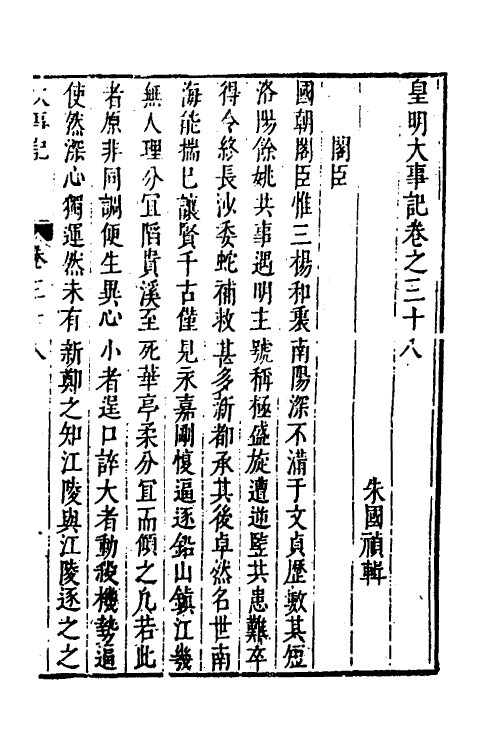 皇明大事記卷之三十八
朱國禎輯
閣臣
國朝閣臣惟三楊和衷南陽深不滿于文貞歷數其短
洛陽餘姚共事遇明主號稱極盛旋遭逆監共患難卒
得令終長沙委蛇補救甚多新都承其後卓然名世南
海能揣已讓賢千古僅見永嘉剛愎逼逐鉛山鎮江幾
無人理分宜陷貴溪至死華亭柔分宜而傾之凡若此
者原非同調便生異心小者逞口誶大者動殺機勢逼
使然深心獨運然未有新鄭之知江陵與江陵逐之之
大事記 卷三十八